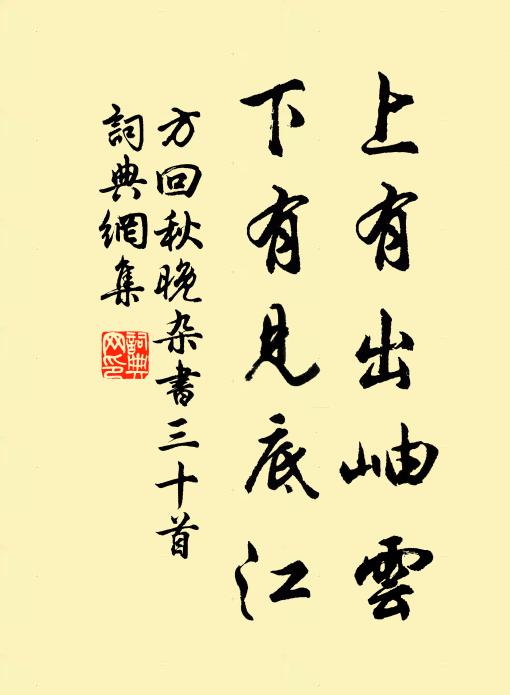 上有出岫雲
下有見底江
方回秋晚杂書三十首
詞典網集
詞典網印